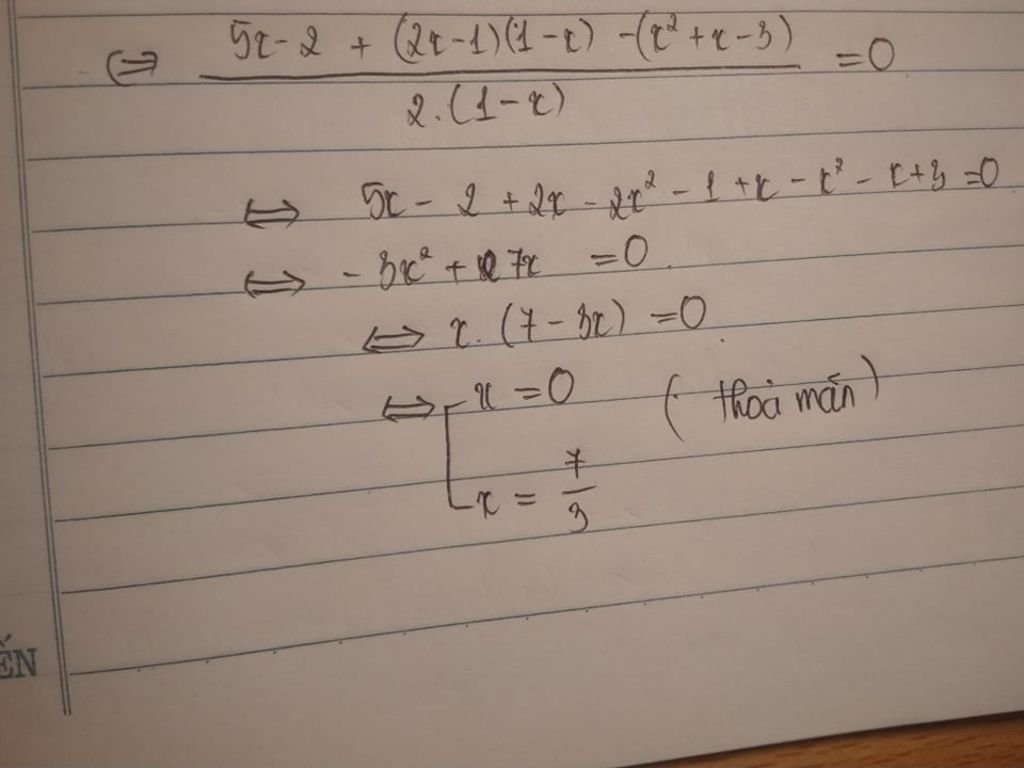 ⇔ (5x - 2 + (2x - 1)(1 - x) - (x² + x - 3)) / (2.(1 - x)) = 0
⇔ 5x - 2 + 2x - 2x² - 1 + x - x² - x + 3 = 0
⇔ - 3x² + 7x = 0
⇔ x. (7 - 3x) = 0
⇔ [ x = 0 (thoả mãn)
x = 7/3
ẾN